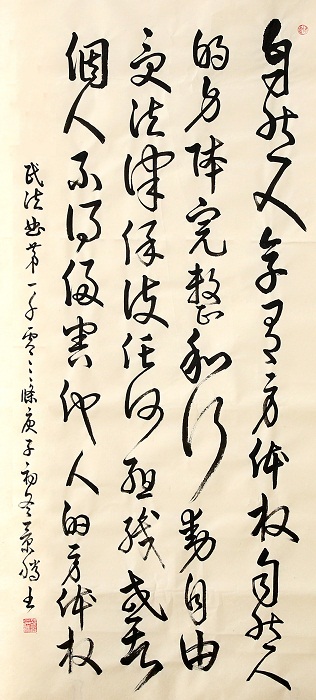 自然人享有身体权自然人
的身体完整和行動自由
受法律保護任何组织或者
個人不得侵害他人的身体权
民法典第一千零三條庚子初冬景腾书